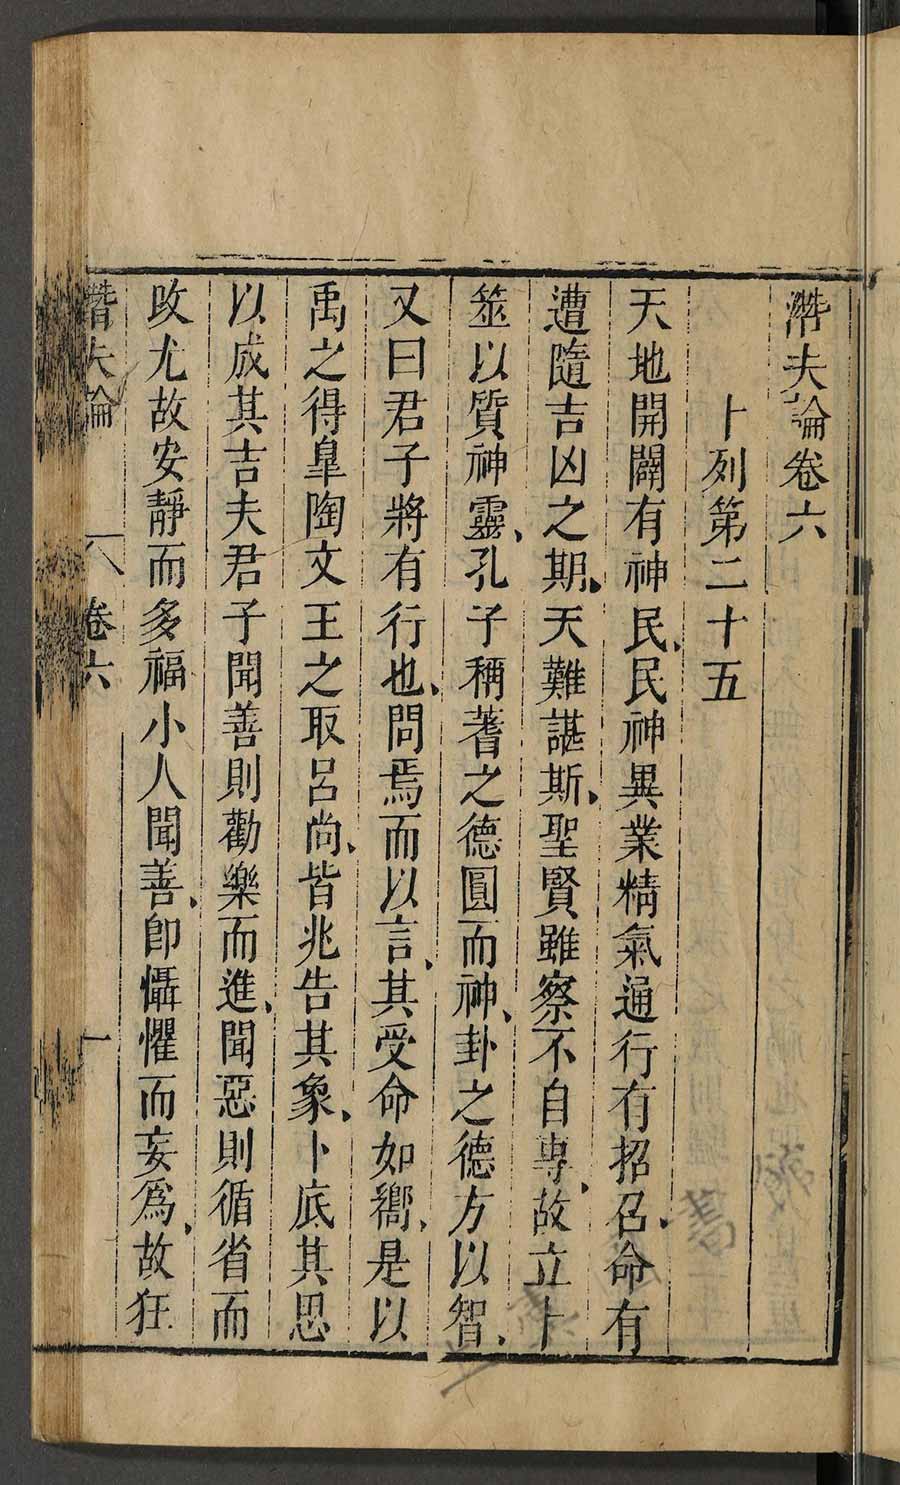 潛夫論卷六
卜列第二十五
天地開闢有神民、民神異業精氣通行有招召、命有
遭隨吉凶之期、天難諶斯、聖賢雖察不自專、故立卜
筮以質神靈、孔子稱蓍之德圓而神、卦之德方以智、
又曰君子將有行也、問焉而以言、其受命如嚮、是以
禹之得臯陶文王之取呂尚、皆兆告其象、卜底其思
以成其吉夫君子聞善則勸樂而進、聞惡則循省而
改尤故安靜而多福小人聞善、卽懾懼而妄爲、故狂
潛夫論 卷六 一